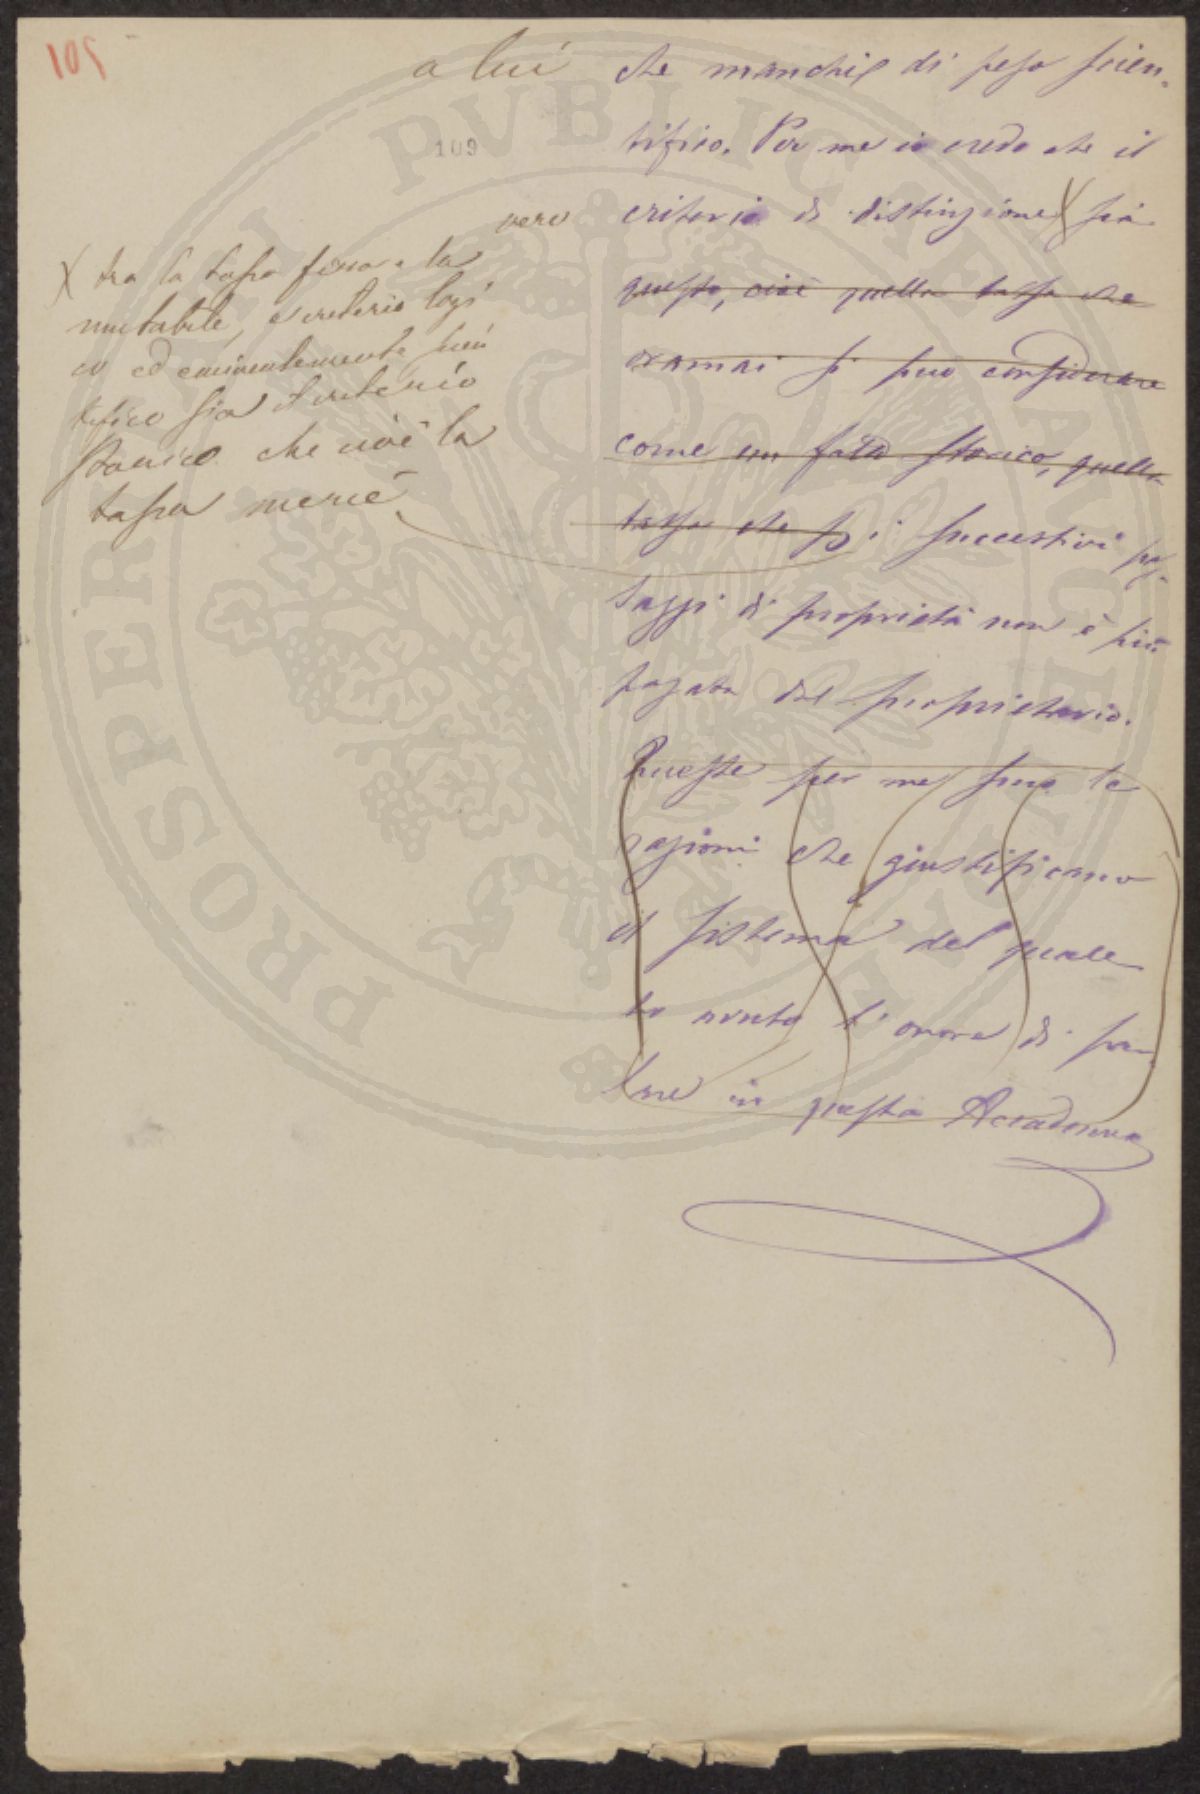 105
109
a lui
che manchi di peso scien-
tifico. Per me io credo che il
vero
criterio di distinzione X sia
questo, cioè quella tassa che
oramai si può considerare
come un fatto storico, quella
tassa che i successivi pas-
saggi di proprietà non è più
pagata dal proprietario.
Queste per me sono le
ragioni che giustificano
il sistema del quale
ho avuto l'onore di par-
lare in questa Accademia
X tra la tassa fissa e la
mutabile, il criterio logi
co ed eminentemente scien
tifico sia il criterio
storico che cioè la
tassa mercé
PROSPERITATI PVBLICAE AVGENDAE